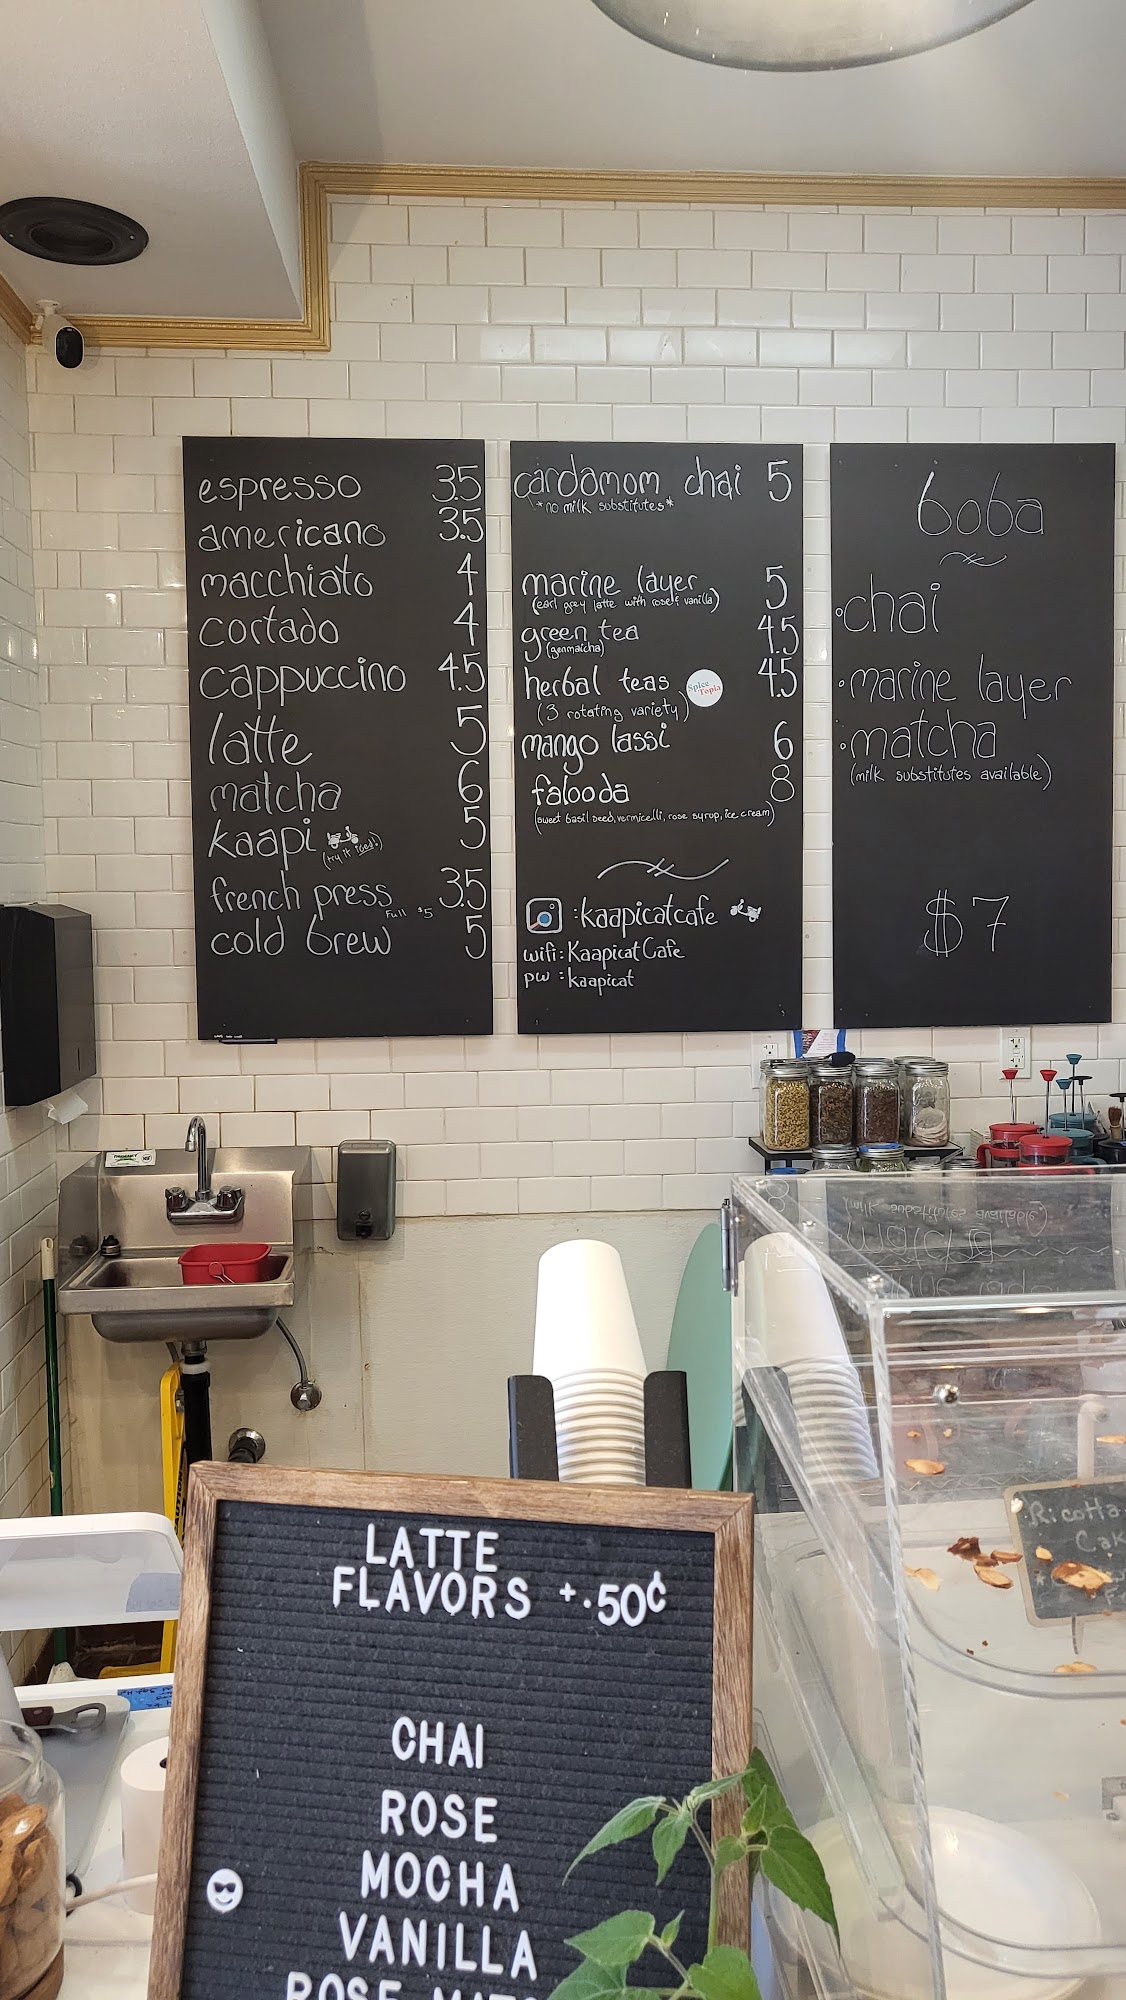 espresso 3.5
americano 3.5
macchiato 4
cortado 4
cappuccino 4.5
latte 5
matcha 6
kaapi 5
(try it iced!)
french press 3.5
Full $5
cold brew 5
cardamom chai 5
*no milk substitutes*
marine layer 5
(earl grey latte with rose & vanilla)
green tea 4.5
(genmaicha)
herbal teas 4.5
Spice Topia
(3 rotating variety)
mango lassi 6
falooda 8
(sweet basil seed, vermicelli, rose syrup, ice cream)
:kaapicatcafe
wifi: Kaapicat Cafe
pw : kaapicat
boba
•chai
•marine layer
•matcha
(milk substitutes available)
$7
LATTE
FLAVORS +.50¢
CHAI
ROSE
MOCHA
VANILLA
ROSE
Ricotta